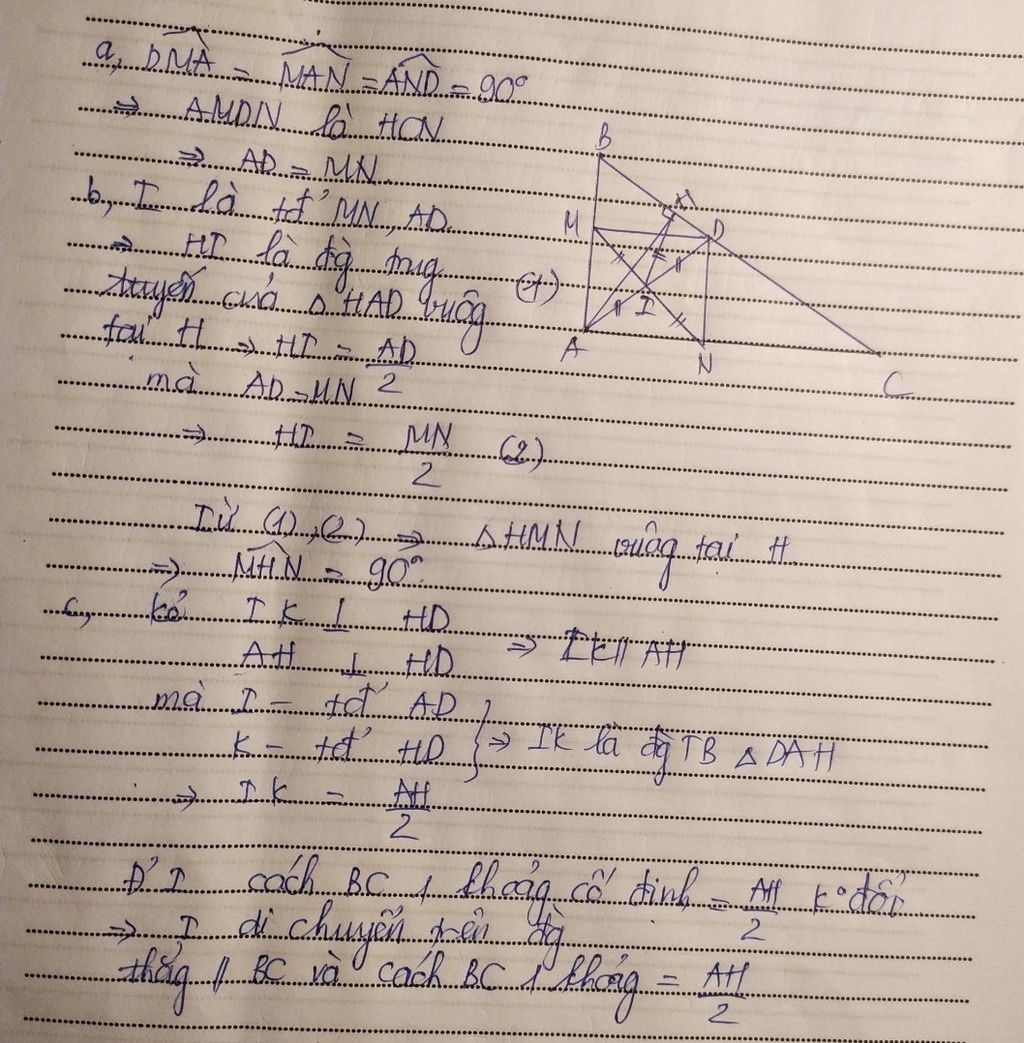 a, DMA = MAN = AND = 90°
⇒ AMDN là HCN
⇒ AD = MN.
b, I là tđ' MN, AD.
⇒ HI là đg trug
tuyến của △ HAD vuôg (1)
tại H ⇒ HI = AD/2
mà AD = MN
⇒ HI = MN/2 (2)
Từ (1), (2) ⇒ △HMN vuôg tại H.
⇒ MHN = 90°.
c, kẻ IK ⊥ HD
AH ⊥ HD ⇒ IK // AH
mà I - tđ' AD
K - tđ' HD } ⇒ IK là đg TB △ DAH
⇒ IK = AH/2
Đ' I cách BC 1 khoảg cố định = AH/2 k° đổi
⇒ I di chuyển trên đg
thẳg // BC và cách BC 1 khoảg = AH/2
B
M
D
I
A
N
C